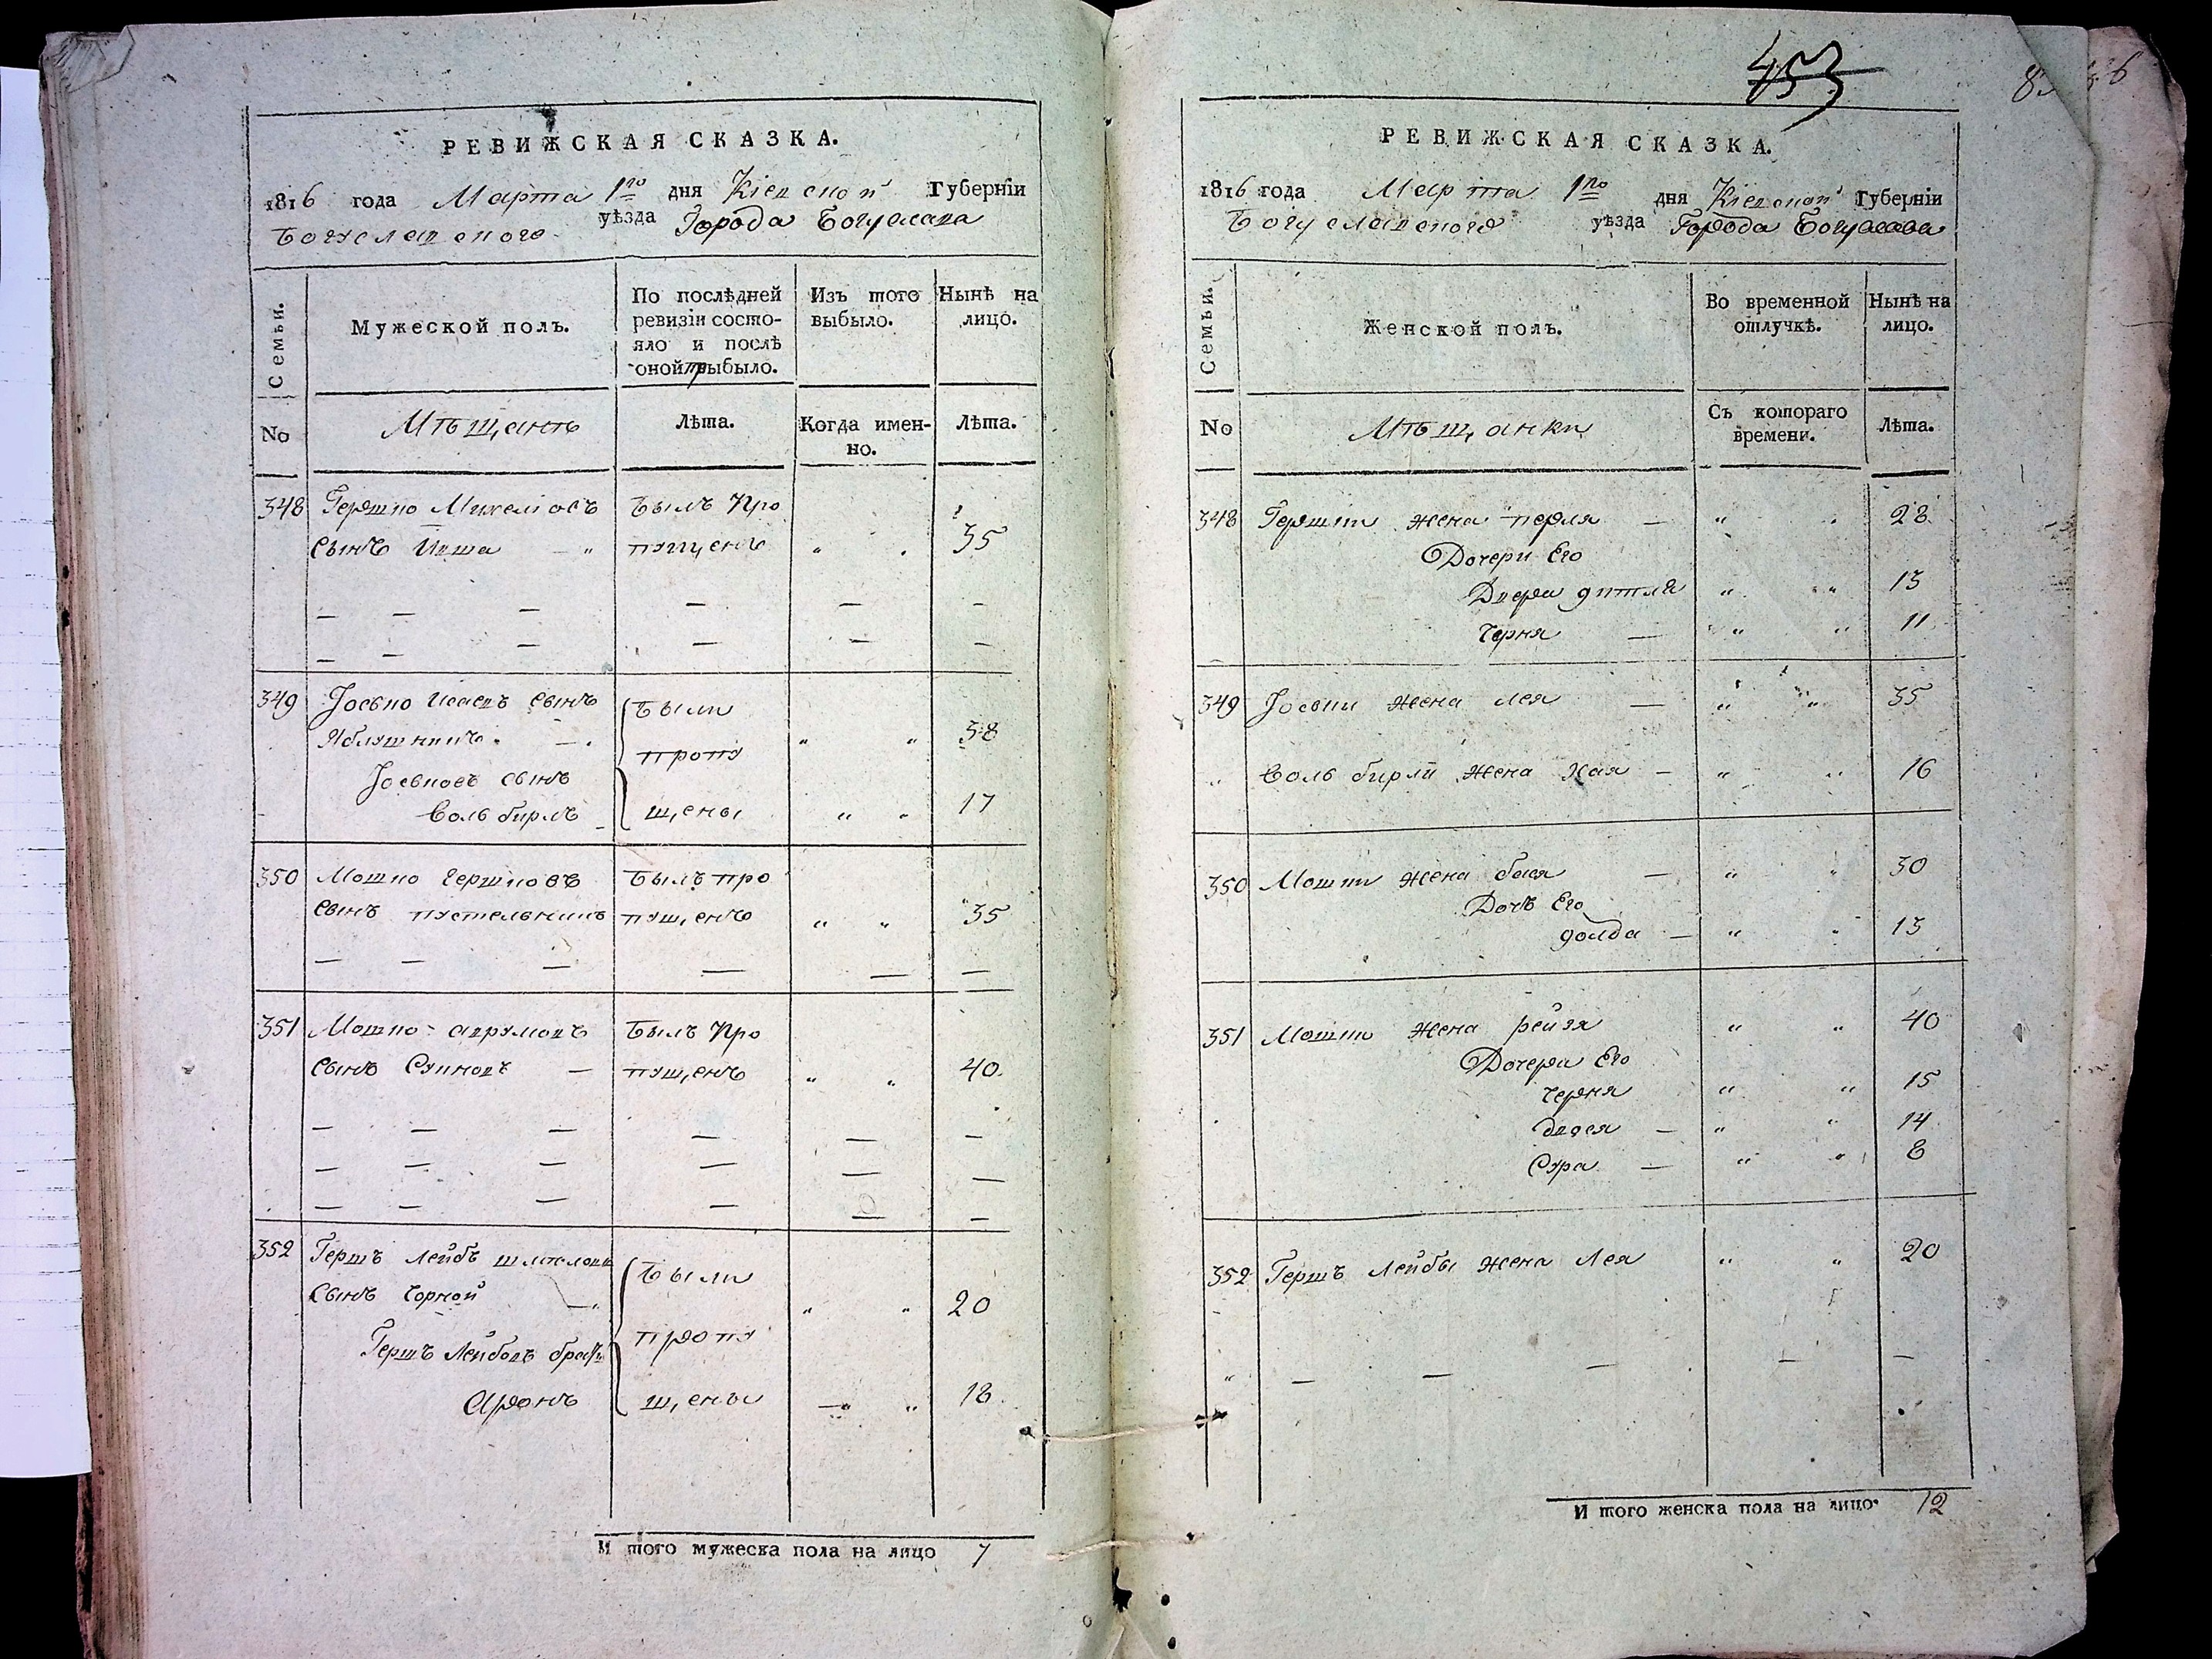 РЕВИЖСКАЯ СКАЗКА.
1816 года Марта 1го дня Кіевской Губерніи
Богуславского уѣзда Города Богуслава
Семьи.
Мужеской полъ.
По послѣдней ревизіи состо-
яло и послѣ
оной прыбыло.
Изъ того выбыло.
Нынѣ на лицо.
No
Мѣщанъ
Лѣта.
Когда имен-
но.
Лѣта.
348 Гершко Михеліовъ былъ про
сынъ пущенъ " " 35
349 Іосько сынъ были
" " 38
Іоськовъ сынъ пропу
Воль бирлъ щены " " 17
350 Мошко Гершковъ былъ про
сынъ пустельникъ пущенъ " " 35
351 Мошко аврумовъ былъ про
сынъ пущенъ " " 40
352 Гершъ Лейбъ были
сынъ Чорной " " 20
Гершъ Лейбовъ братъ пропу
Аронъ щены " " 18
И того мужеска пола на лицо 7
453
РЕВИЖСКАЯ СКАЗКА.
1816 года Марта 1го дня Кіевской Губерніи
Богуславского уѣзда Города Богуслава
Семьи.
Женской полъ.
Во временной отлучкѣ.
Нынѣ на лицо.
No
Мѣщанки
Съ котораго времени.
Лѣта.
348 Гершки жена перля " " 28
Дочери Его
Двера " " 13
Черня " " 11
349 Іоськи жена лея " " 35
Воль бирли жена Хая " " 16
350 Мошки жена бася " " 30
Дочь Его
голда " " 13
351 Мошки жена рейзя " " 40
Дочери Его
Черня " " 15
" " 14
Сура " " 8
352 Гершъ Лейбы жена Лея " " 20
И того женска пола на лицо 12